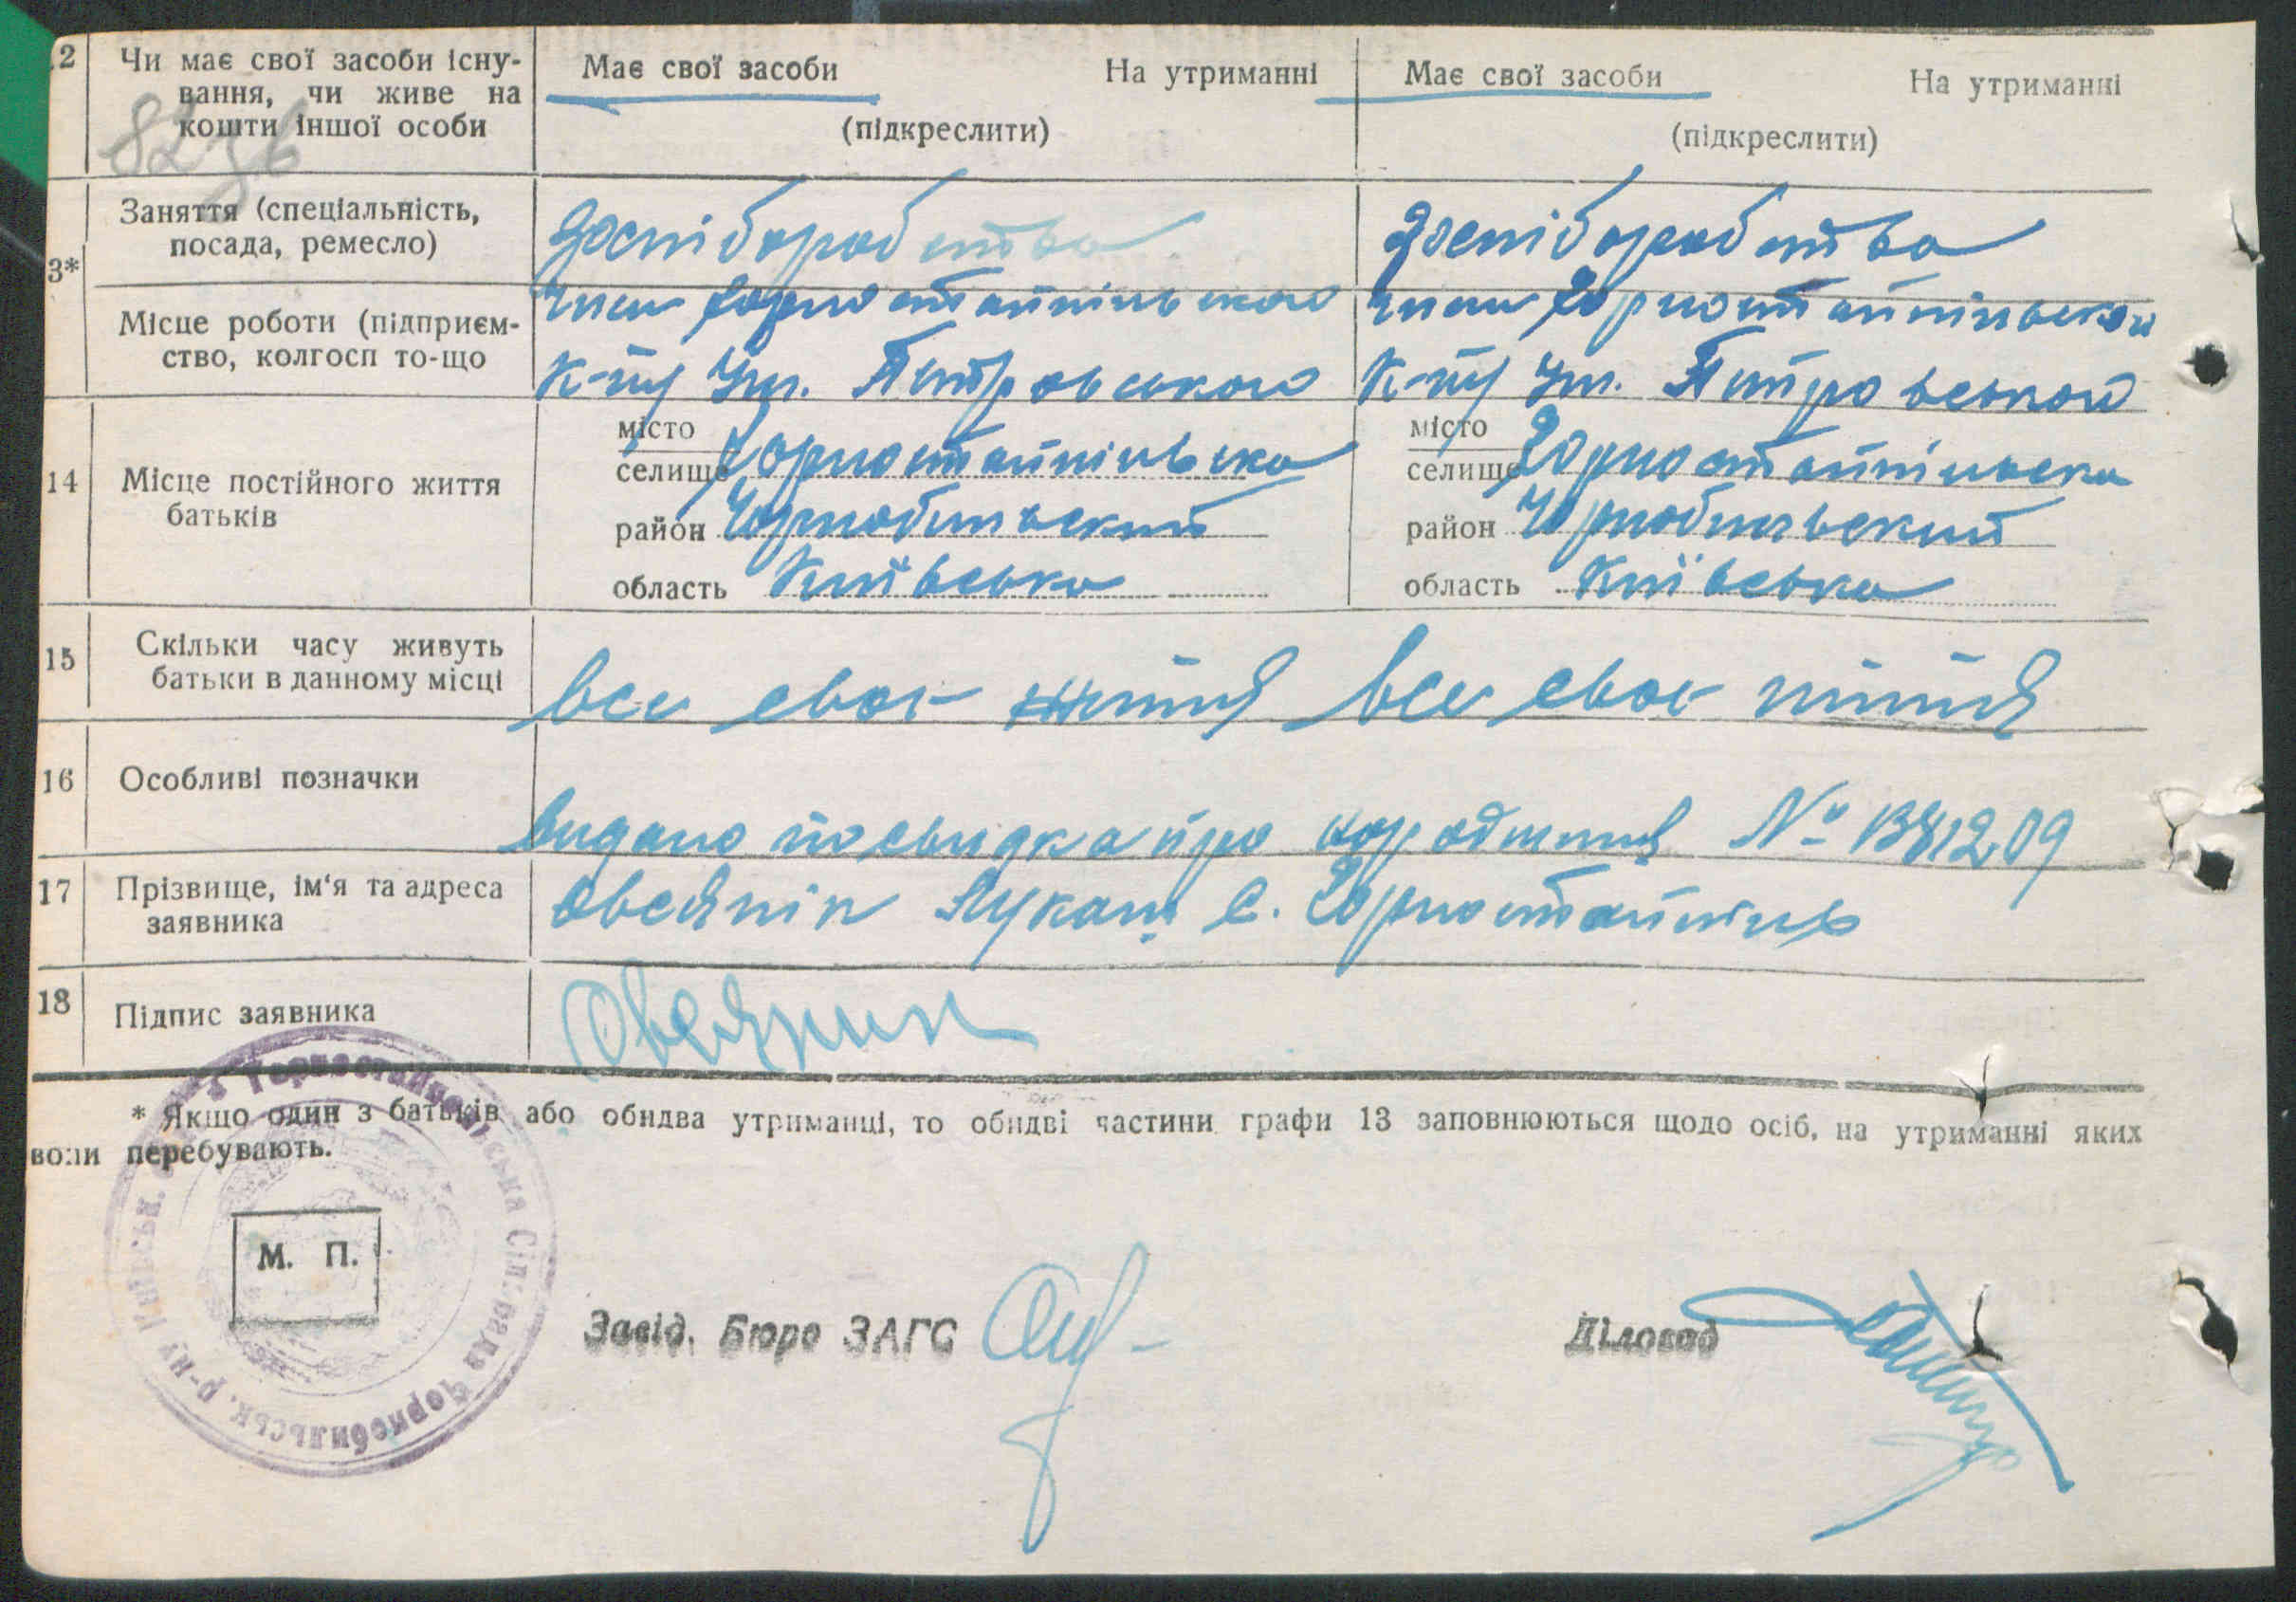 2 Чи має свої засоби існу- Має свої засоби На утриманні Має свої засоби На утриманні
вання, чи живе на
кошти іншої особи (підкреслити) (підкреслити)
Заняття (спеціальність,
посада, ремесло)
3*
Місце роботи (підприєм- член Горностайпільсько
ство, колгосп то-що к-пу Ім. Петровського к-пу Ім. Петровської
14 Місце постійного життя
батьків
місто місто
селище Горностайпільска селище Горностайпільска
район Чорнобильський район Чорнобильський
область Київська область Київська
15 Скільки часу живуть
батьки в данному місці
все своє життя все своє життя
16 Особливі позначки
видано посвидка про народження № 1381209
17 Прізвище, ім‘я та адреса
заявника
Овсянік Лукаш с. Горностайпіль
18 Підпис заявника Овсяник
* Якщо один з батьків або обидва утриманці, то обидві частини графи 13 заповнюються щодо осіб, на утриманні яких
вони перебувають.
Горностайпільська Сіл. рада Чорнобильськ. р-ну Київськ.
М. П.
Завід. Бюро ЗАГС Діловод